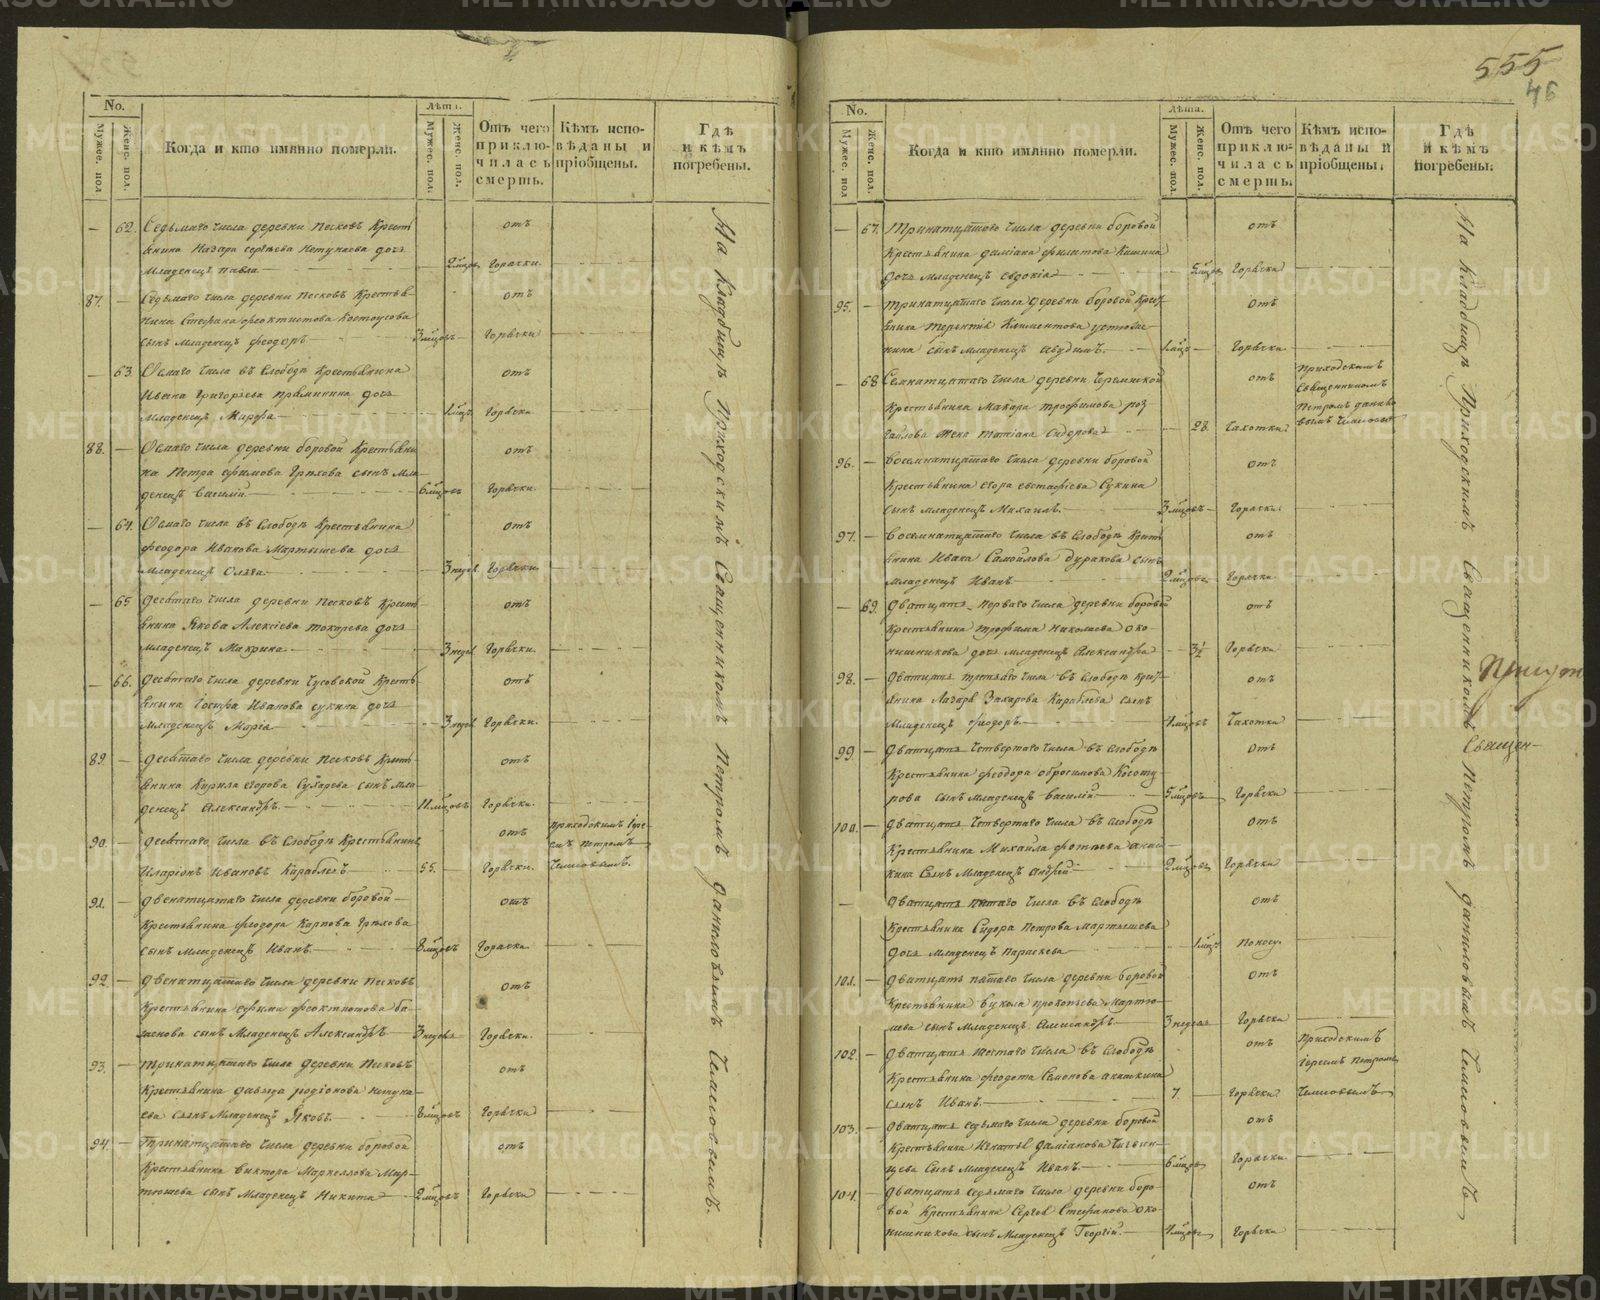 555
46
No.
Мужес. пол
Женс. пол.
Когда и кто имянно померли.
Лѣта.
Мужес. пол.
Женс. пол.
Отъ чего приключилась смерть.
Кѣмъ исповѣданы и пріобщены.
Гдѣ и кѣмъ погребены.
62. Седьмаго числа деревни Песковъ Крест
янина Назара Сергѣева дочь
Младенецъ Павла 2 мцов отъ Горячки
87. Седьмаго числа деревни Песковъ Крестья-
нина Стефана Феоктистова Костоусова
сынъ Младенецъ Феодоръ 3 мцовъ отъ Горячки
63. Осмаго числа въ Слободѣ Крестьянина
Ивана Григорьева дочь
Младенецъ Марфа 1 мцъ отъ Горячки
88. Осмаго числа деревни Боровой Крестьяни
на Петра Ефимова Грѣхова сынъ Мла-
денецъ Василій 6 мцовъ отъ Горячки
64. Осмаго числа въ Слободѣ Крестьянина
Феодора Иванова Мартышева дочь
Младенецъ Ольга 3 недел. отъ Горячки
65. Десятаго числа деревни Песковъ Кресть
янина Якова Алексіева Токарева дочь
Младенецъ Макрина 3 недел отъ Горячки.
66. Десятаго числа деревни Чусовской Кресть
янина Іосифа Иванова Сукина дочь
Младенецъ Марія 3 недел отъ Горячки.
89. Десятаго числа деревни Песковъ Кресть
янина Кирила Егорова Сухарева сынъ Мла
денецъ Александръ 11 мцовъ отъ Горячки.
90. Десятаго числа въ Слободѣ Крестьянинъ
Иларіонъ Ивановъ Караблевъ 55. отъ Горячки. Приходскимъ Іере-
емъ Петромъ
91. Двенатцатаго числа деревни Боровой
Крестьянина Феодора Карпова Грѣхова
сынъ Младенецъ Иванъ 8 мцовъ отъ Горячки.
92. Двенатцатаго числа деревни Песковъ
Крестьянина Ефима Феоктистова
сынъ Младенецъ Александръ 3 недел отъ Горячки.
93. Тринатцатаго числа деревни Песковъ
Крестьянина Давыда Родіонова
сынъ Младенецъ Яковъ 8 мцовъ отъ Горячки
94. Тринатцатаго числа деревни Боровой
Крестьянина Виктора Маркеллова Мар-
тышева сынъ Младенецъ Никита 2 мцовъ отъ Горячки
На Кладбищѣ Приходскимъ Священникомъ Петромъ Даниловымъ
No.
Мужес. пол
Женс. пол.
Когда и кто имянно померли.
лѣта.
Мужес. пол.
Женс. пол.
Отъ чего приключилась смерть.
Кѣмъ исповѣданы и пріобщены.
Гдѣ и кѣмъ погребены.
67. Тринатцатаго числа деревни Боровой
Крестьянина Даміана Филатова
дочь Младенецъ Евдокія 5 мцов отъ Горячки
95. Тринатцатаго числа деревни Боровой Крест
янина Терентія Климентова
сынъ Младенецъ 1 мцъ отъ Горячки.
68. Семнатцатаго числа деревни Черемиской
Крестьянина Макара Трофимова
жена Татіана Сидорова 28. отъ Чахотки. Приходскимъ
Священникомъ
Петромъ Данило
вымъ
96. Восемнатцатаго числа деревни Боровой
Крестьянина Егора Евстафіева Сукина
сынъ Младенецъ Михаилъ 3 мцовъ отъ Горячки.
97. Восемнатцатаго числа въ Слободѣ Крест
янина Ивана Самойлова Дуракова сынъ
Младенецъ Иванъ 2 мцовъ отъ Горячки
69. Дватцать перваго числа деревни Боровой
Крестьянина Трофима Николаева Око-
нишникова дочь Младенецъ Александра 3½ отъ Горячки
98. Дватцать третьяго числа въ Слободѣ Крест
янина Лазаря Захарова Караблева сынъ
Младенецъ Феодоръ 4 мцовъ отъ Чахотки
99. Дватцать четвертаго числа въ Слободѣ
Крестьянина Феодора Обросимова
сынъ Младенецъ Василій 5 мцовъ отъ Горячки
100. Дватцать четвертаго числа въ Слободѣ
Крестьянина Михаила Фотіева Анаш
кина сынъ Младенецъ Андрей 2 мцовъ отъ Горячки
Дватцать пятаго числа въ Слободѣ
Крестьянина Сидора Петрова Мартышева
дочь Младенецъ Параскева 1 мцъ отъ Поносу.
101. Дватцать пятаго числа деревни Боровой
Крестьянина Вукола Прокопьева Марты-
шева сынъ Младенецъ Александръ 3 недел отъ Горячки
102. Дватцать шестаго числа въ Слободѣ
Крестьянина Федота Семенова Анашкина
сынъ Иванъ 7 отъ Горячки Приходскимъ
Іереемъ Петромъ
103. Дватцать седьмаго числа деревни Боровой
Крестьянина Игнатія Даміанова
сынъ Младенецъ Иванъ 6 мцов отъ Горячки
104. Дватцать седьмаго числа деревни Боро-
вой Крестьянина Сергѣя Стефанова Око-
нишникова сынъ Младенецъ Георгій 4 мцовъ отъ Горячки
На Кладбищѣ Приходскимъ Священникомъ Петромъ Даниловымъ
Священ-
METRIKI.GASO-URAL.RU